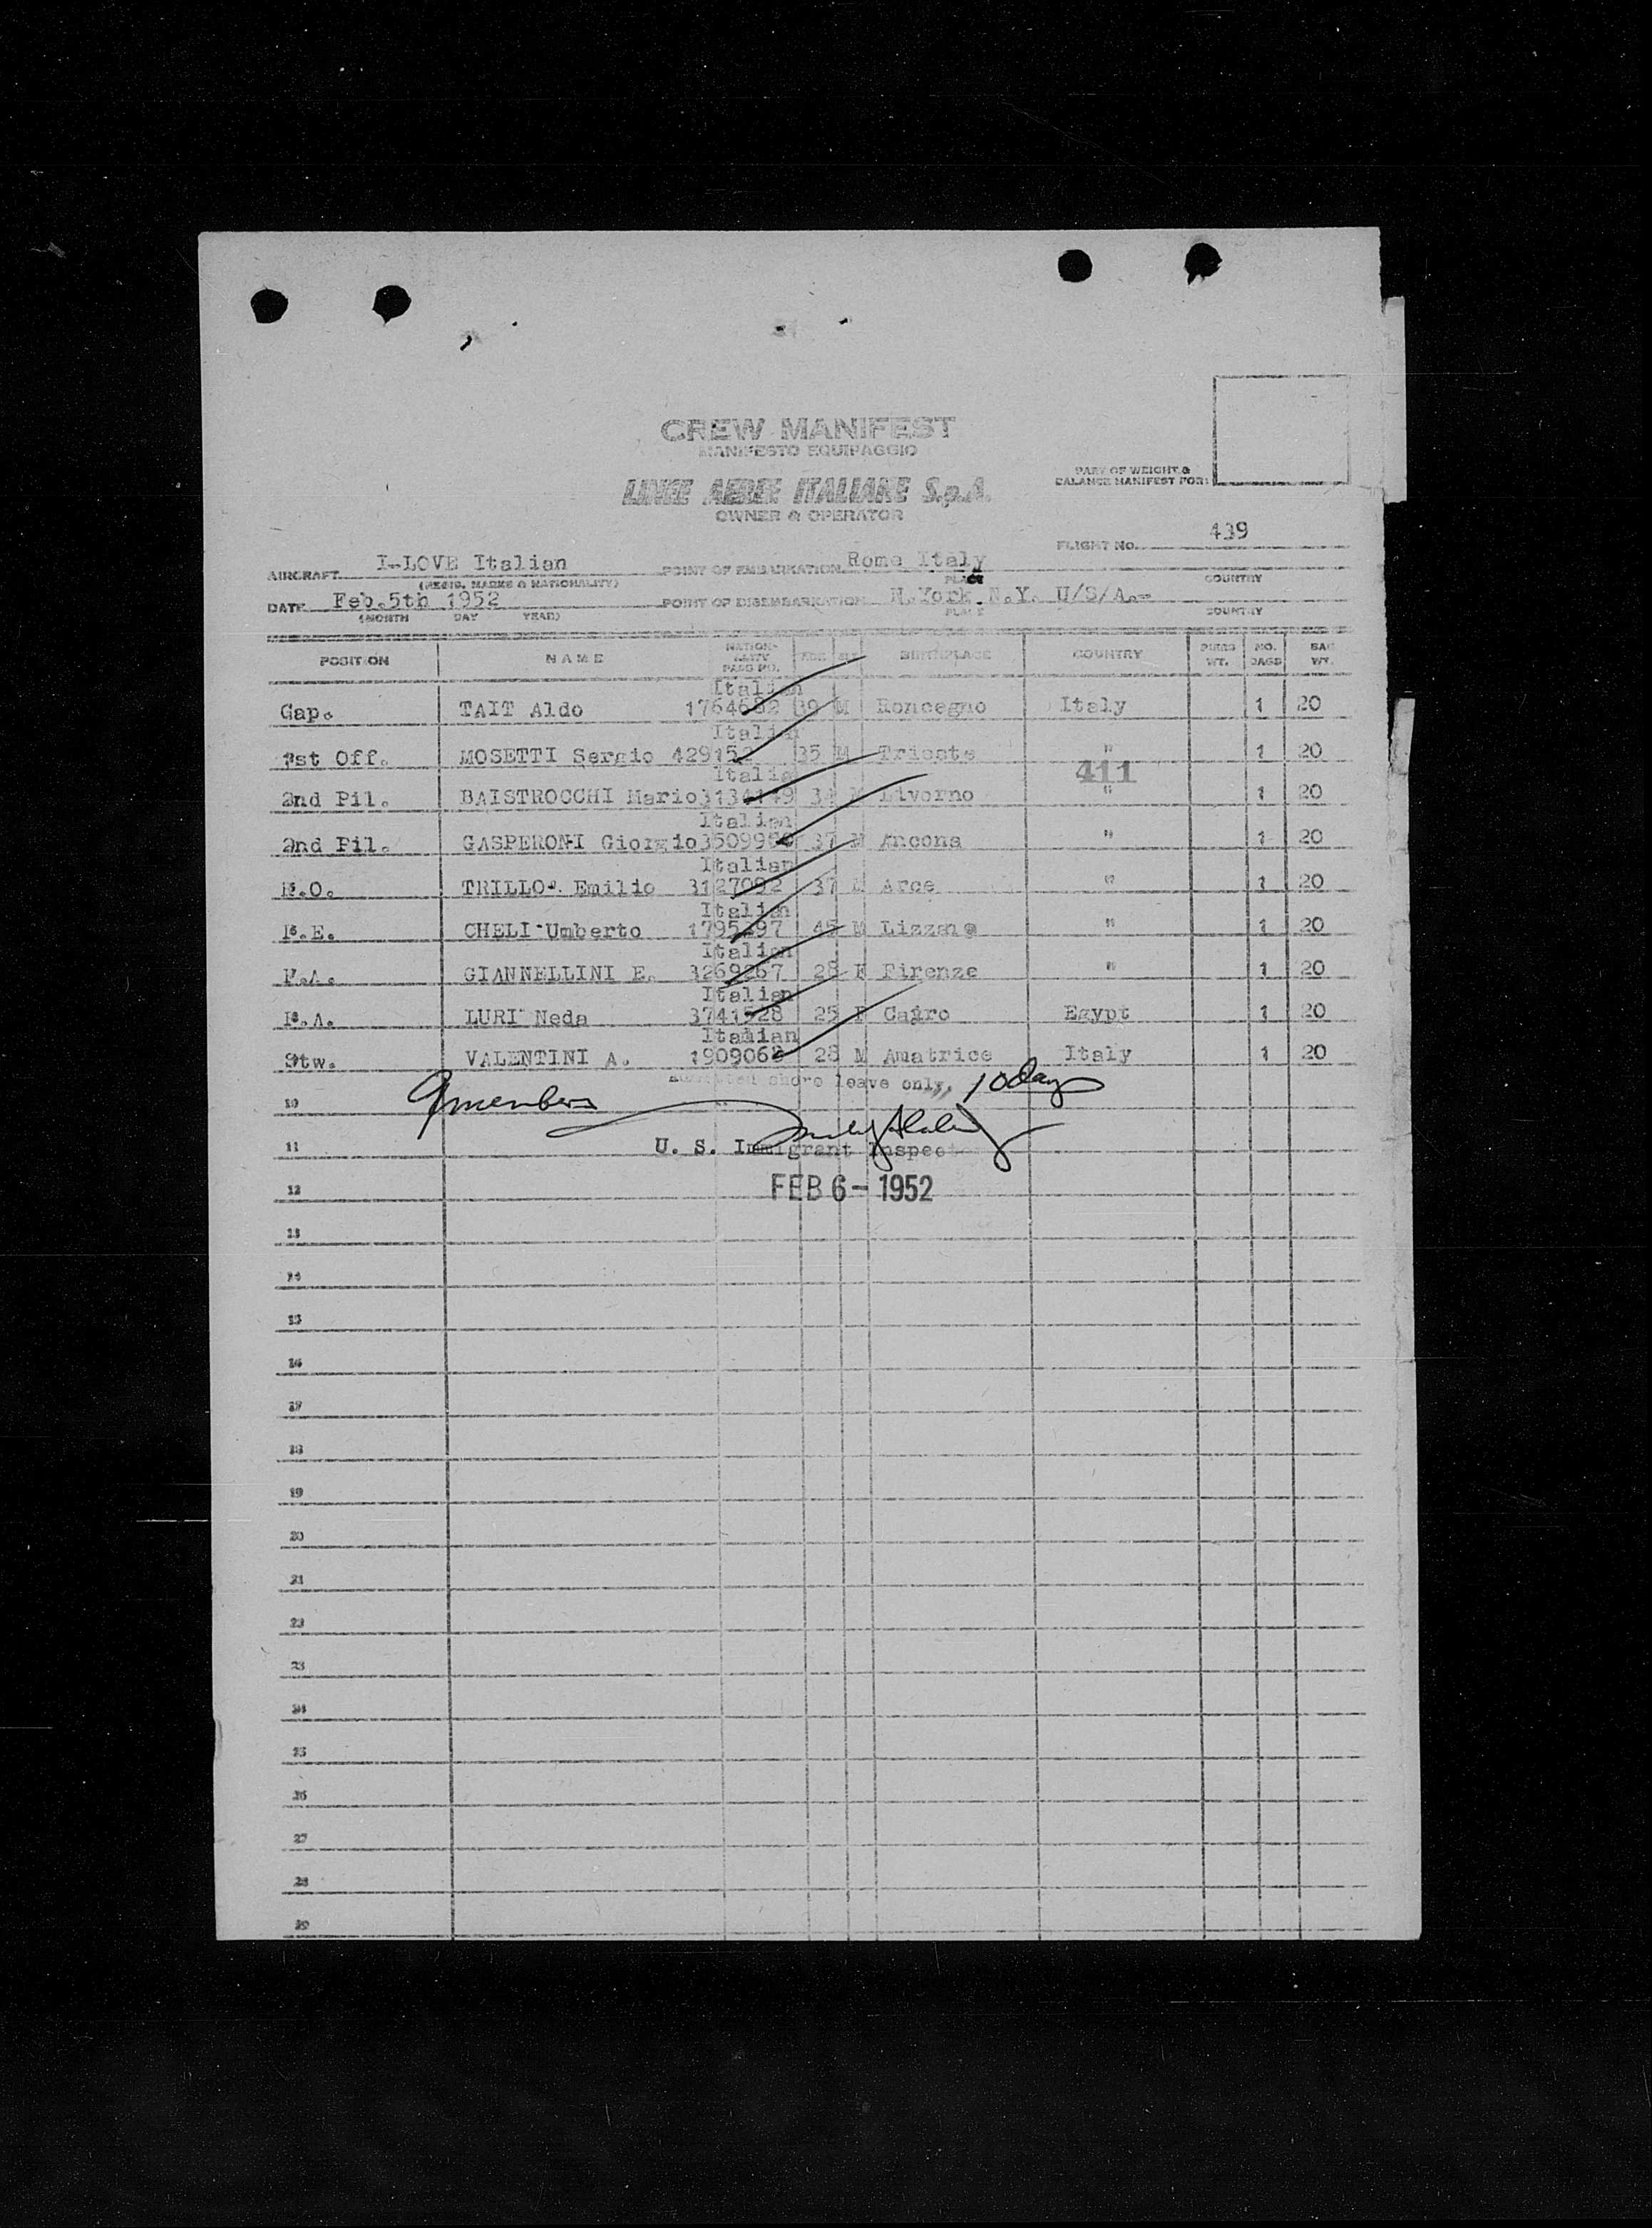 CREW MANIFEST
MANIFESTO EQUIPAGGIO
LINEE AEREE ITALIANE S.p.A.
OWNER & OPERATOR
PART OF WEIGHT &
BALANCE MANIFEST FOR:
FLIGHT No. 439
AIRCRAFT I-LOVE Italian
(REGIS. MARKS & NATIONALITY)
POINT OF EMBARKATION Roma Italy
PLACE COUNTRY
DATE Feb.5th 1952
(MONTH DAY YEAR)
POINT OF DISEMBARKATION N.York N.Y. U/S/A.-
PLACE COUNTRY
POSITION NAME NATION-ALITY PASS NO. AGE SEX BIRTHPLACE COUNTRY WT. NO. BAGS BAG WT.
Italian
Cap. TAIT Aldo 1764682 39 M Roncegno Italy 1 20
Italian
1st Off. MOSETTI Sergio 429152 35 M Trieste " 1 20
411
Italia
2nd Pil. BAISTROCCHI Mario 3134149 34 M Livorno " 1 20
Italian
2nd Pil. GASPERONI Giorgio 37 M Ancona " 1 20
Italian
TRILLO Emilio 3127092 37 M Arce " 1 20
Italian
F.E. CHELI Umberto 45 M Lizzano " 1 20
Italian
F.A. GIANNELLINI E. 3269267 28 F Firenze " 1 20
Italian
F.A. LURI Neda 3741528 25 F Cairo Egypt 1 20
Italian
Stw. VALENTINI A. 28 M Amatrice Italy 1 20
shore leave only, 10 days
10 9 members
11 U. S. Immigrant Inspector
12 FEB 6 - 1952
13
14
15
16
17
18
19
20
21
22
23
24
25
26
27
28
29